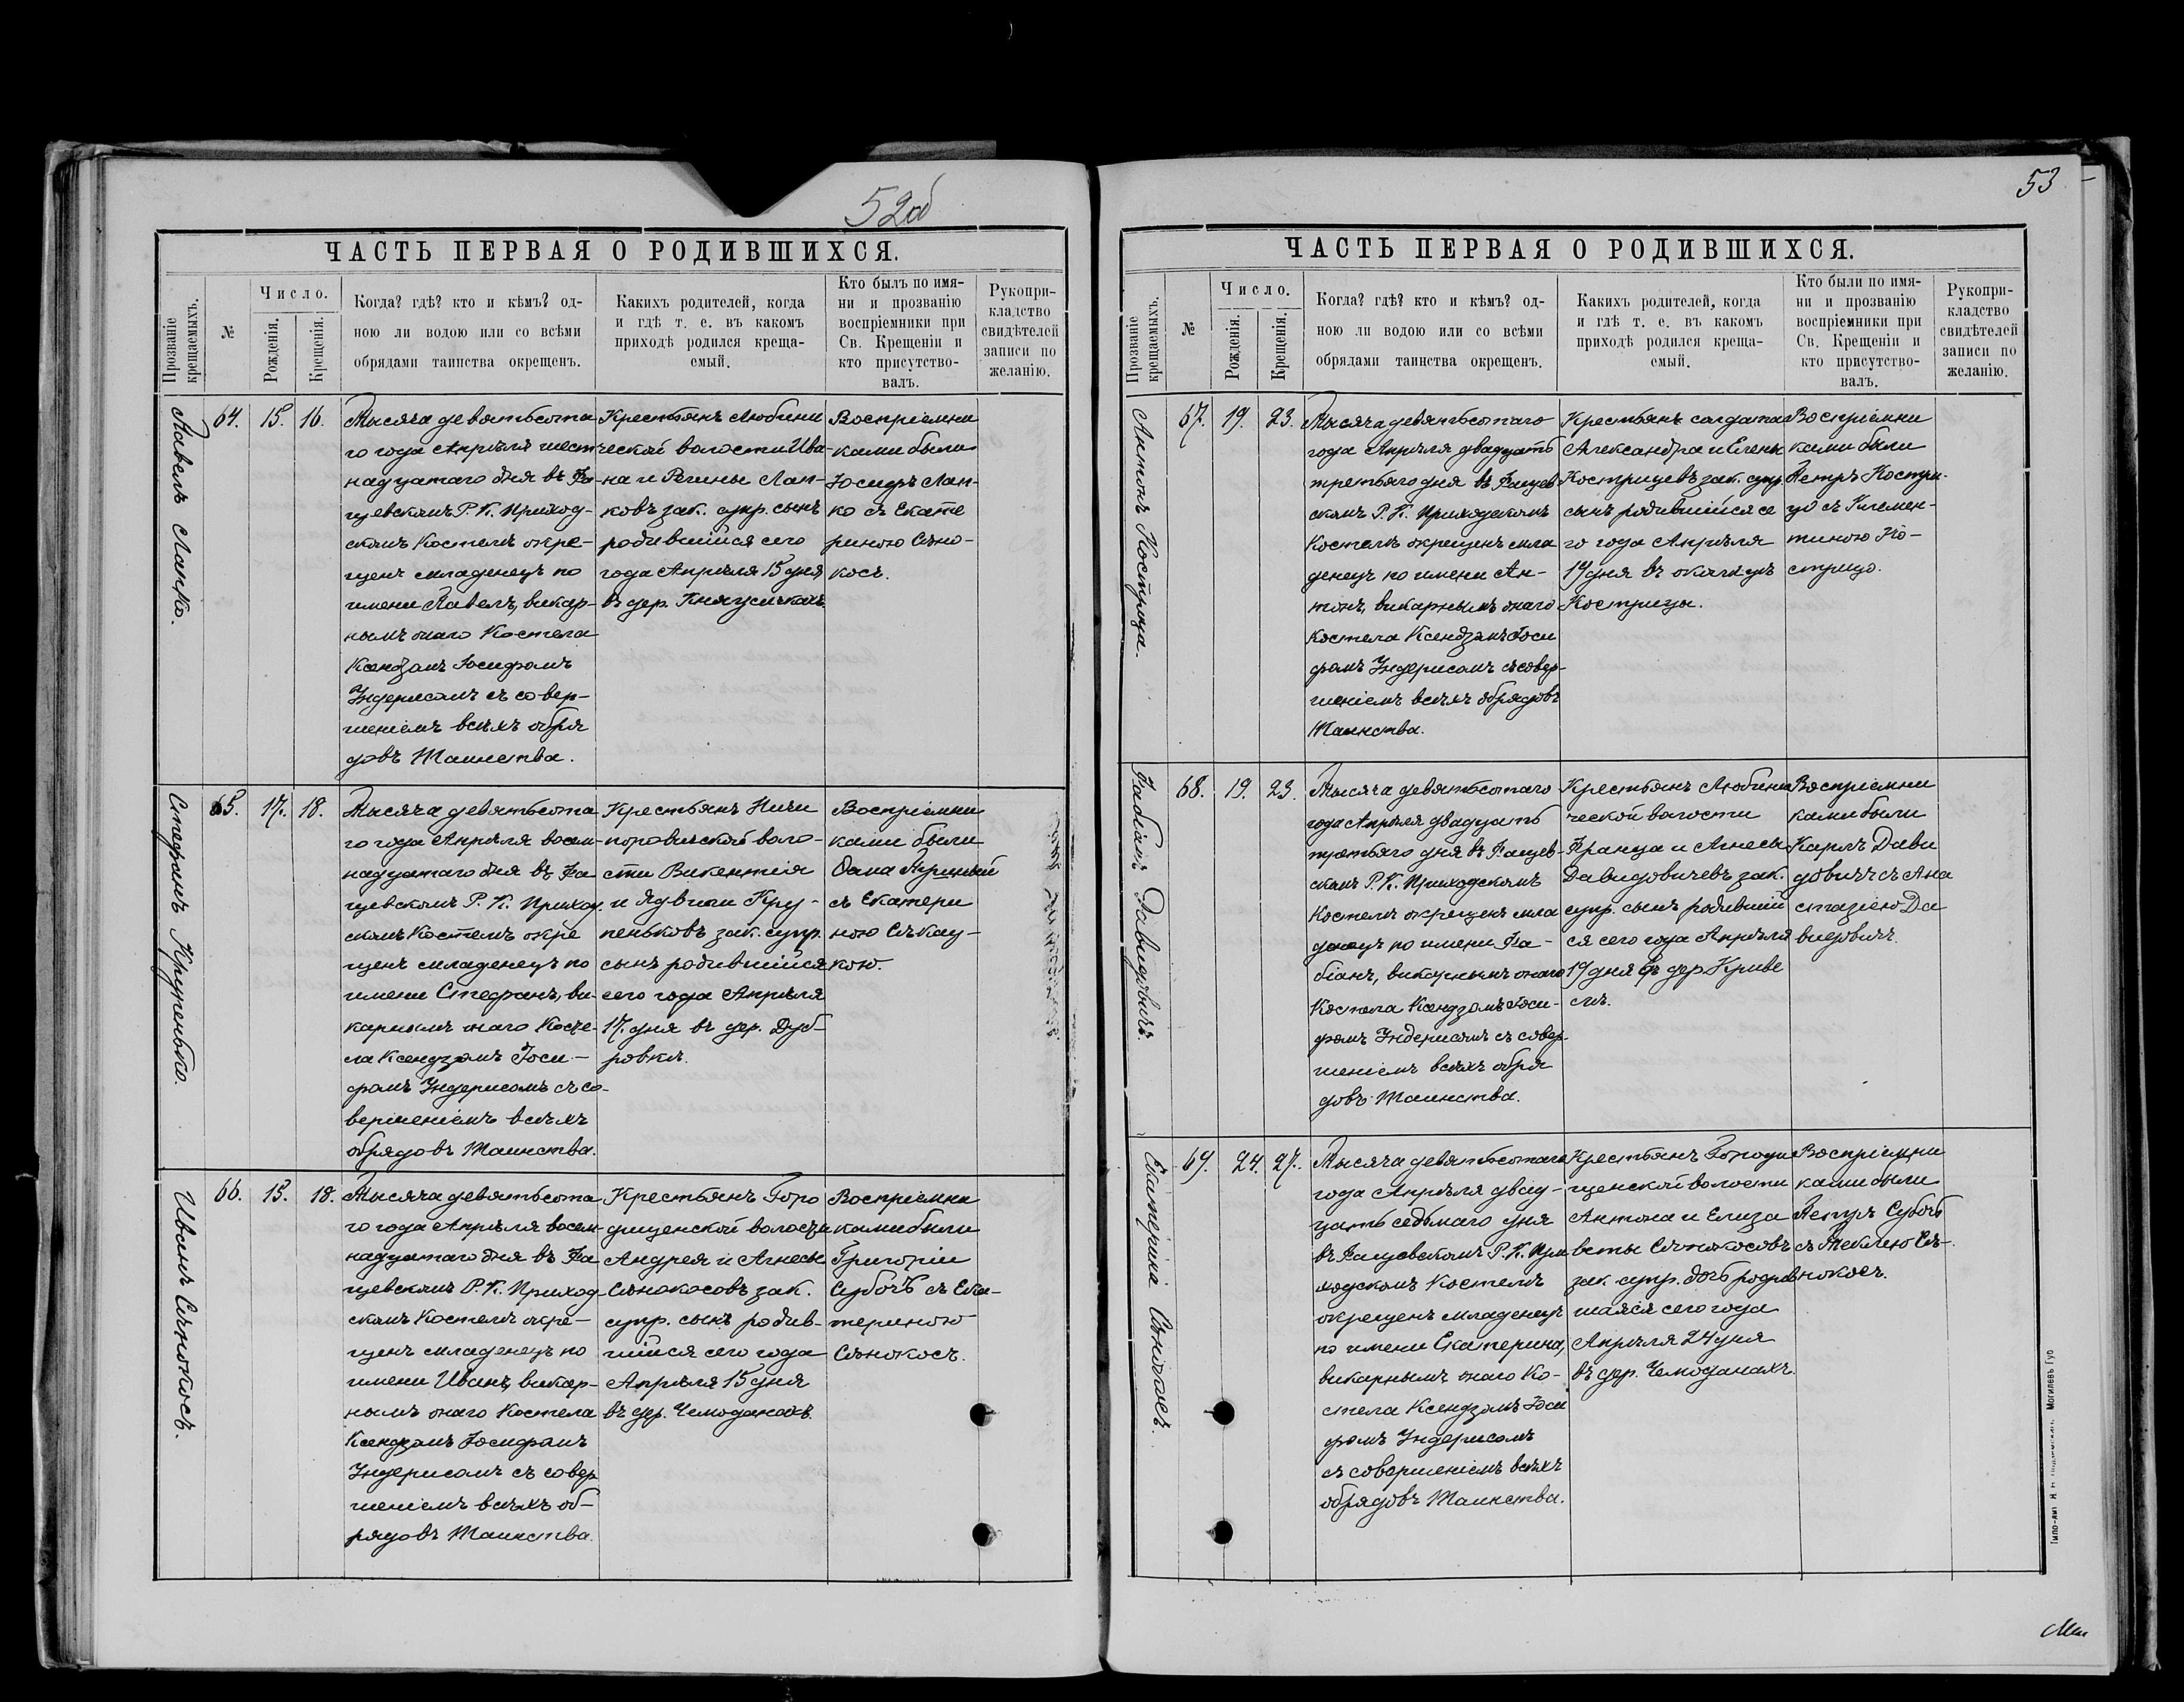 52об
ЧАСТЬ ПЕРВАЯ О РОДИВШИХСЯ.
Прозваніе крещаемыхъ.
№
Число.
Рожденія.
Крещенія.
Когда? гдѣ? кто и кѣмъ? од-
ною ли водою или со всѣми
обрядами таинства окрещенъ.
Какихъ родителей, когда
и гдѣ т. е. въ какомъ
приходѣ родился креща-
емый.
Кто былъ по имя-
ни и прозванію
воспріемники при
Св. Крещеніи и
кто присутство-
валъ.
Рукопри-
кладство
свидѣтелей
записи по
желанію.
Павелъ Лапко.
64. 15. 16.
Тысяча девятьсота
го года Апрѣля шест
надцатаго дня въ Фа-
щевскомъ Р. К. Приход-
скомъ Костелѣ окре-
щенъ младенецъ по
имени Павелъ, викар-
нымъ онаго Костела
Ксендзомъ Іосифомъ
Индерисомъ съ совер-
шеніемъ всѣхъ обря
довъ Таинства.
Крестьянъ Любини
ческой волости Ива-
на и Регины Лап-
ковъ зак. супр. сынъ
родившійся сего
года Апрѣля 15 дня
въ дер. Княжицкахъ
Воспріемни
ками были
Іосифъ Лап-
ко съ Екате
риною Сѣно-
косъ.
Стефанъ Крупенько.
65. 17. 18.
Тысяча девятьсота
го года Апрѣля восем-
надцатаго дня въ Фа
щевскомъ Р. К. Приход.
скомъ Костелѣ окре
щенъ младенецъ по
имени Стефанъ, ви-
карнымъ онаго Косте-
ла Ксендзомъ Іоси-
фомъ Индерисомъ съ со-
вершеніемъ всѣхъ
обрядовъ Таинства.
Крестьянъ Ничи
поровичской воло-
сти Викентія
и Ядвиги Кру-
пеньковъ зак. супр.
сынъ родившійся
сего года Апрѣля
17. дня въ дер. Дуб-
ровкѣ.
Воспріемни
ками были
съ Екатери
ною
кою.
Иванъ Сѣнокосъ.
66. 15. 18.
Тысяча девятьсота
го года Апрѣля восем-
надцатаго дня въ Фа
щевскомъ Р. К. Приход-
скомъ Костелѣ окре-
щенъ младенецъ по
имени Иванъ, викар-
нымъ онаго Костела
Ксендзомъ Іосифомъ
Индерисомъ съ совер
шеніемъ всѣхъ об-
рядовъ Таинства.
Крестьянъ Горо
дищенской волости
Андрея и Агнесы
Сѣнокосовъ зак.
супр. сынъ родив-
шійся сего года
Апрѣля 15 дня
въ дер. Чемоданахъ.
Воспріемни
ками были
Григорій
Субочъ съ Ека-
териною
Сѣнокосъ.
53
ЧАСТЬ ПЕРВАЯ О РОДИВШИХСЯ.
Прозваніе крещаемыхъ.
№
Число.
Рожденія.
Крещенія.
Когда? гдѣ? кто и кѣмъ? од-
ною ли водою или со всѣми
обрядами таинства окрещенъ.
Какихъ родителей, когда
и гдѣ т. е. въ какомъ
приходѣ родился креща-
емый.
Кто были по имя-
ни и прозванію
воспріемники при
Св. Крещеніи и
кто присутство-
валъ.
Рукопри-
кладство
свидѣтелей
записи по
желанію.
Антонъ Кострица.
67. 19. 23.
Тысяча девятьсотаго
года Апрѣля двадцать
третьяго дня въ Фащев
скомъ Р. К. Приходскомъ
Костелѣ окрещенъ мла
денецъ по имени Ан-
тонъ, викарнымъ онаго
Костела Ксендзомъ Іоси
фомъ Индерисомъ съ совер-
шеніемъ всѣхъ обрядовъ
Таинства.
Крестьянъ солдата
Александра и Елены
Кострицевъ зак. супр.
сынъ родившійся се
го года Апрѣля
19 дня въ околицѣ
Кострицы.
Воспріемни
ками были
Петръ Костри-
цо съ Климен-
тиною Ко-
стрицо.
Фабіанъ Давидовичъ.
68. 19. 23.
Тысяча девятьсотаго
года Апрѣля двадцать
третьяго дня въ Фащев-
скомъ Р. К. Приходскомъ
Костелѣ окрещенъ мла
денецъ по имени Фа-
біанъ, викарнымъ онаго
Костела Ксендзомъ Іоси-
фомъ Индерисомъ съ совер-
шеніемъ всѣхъ обря
довъ Таинства.
Крестьянъ Любини
ческой волости
Франца и Агнесы
Давидовичевъ зак.
супр. сынъ родивший
ся сего года Апрѣля
19 дня въ дер. Криве
лѣ.
Воспріемни
ками были
Карлъ Дави
довичъ съ Ана
стазіею Да
видовичъ.
Екатерина Сѣнокосъ.
69. 24. 27.
Тысяча девятьсотаго
года Апрѣля двад-
цать седьмаго дня
въ Фащевскомъ Р. К. При
ходскомъ Костелѣ
окрещенъ младенецъ
по имени Екатерина,
викарнымъ онаго Ко-
стела Ксендзомъ Іоси
фомъ Индерисомъ
съ совершеніемъ всѣхъ
обрядовъ Таинства.
Крестьянъ Городи
щенской волости
Антона и Елиза
веты Сѣнокосовъ
зак. супр. дочь родив
шаяся сего года
Апрѣля 24 дня
въ дер. Чемоданахъ.
Воспріемни
ками были
Петръ Субочъ
съ Теклею Сѣ-
нокосъ.
Могилевъ Губ